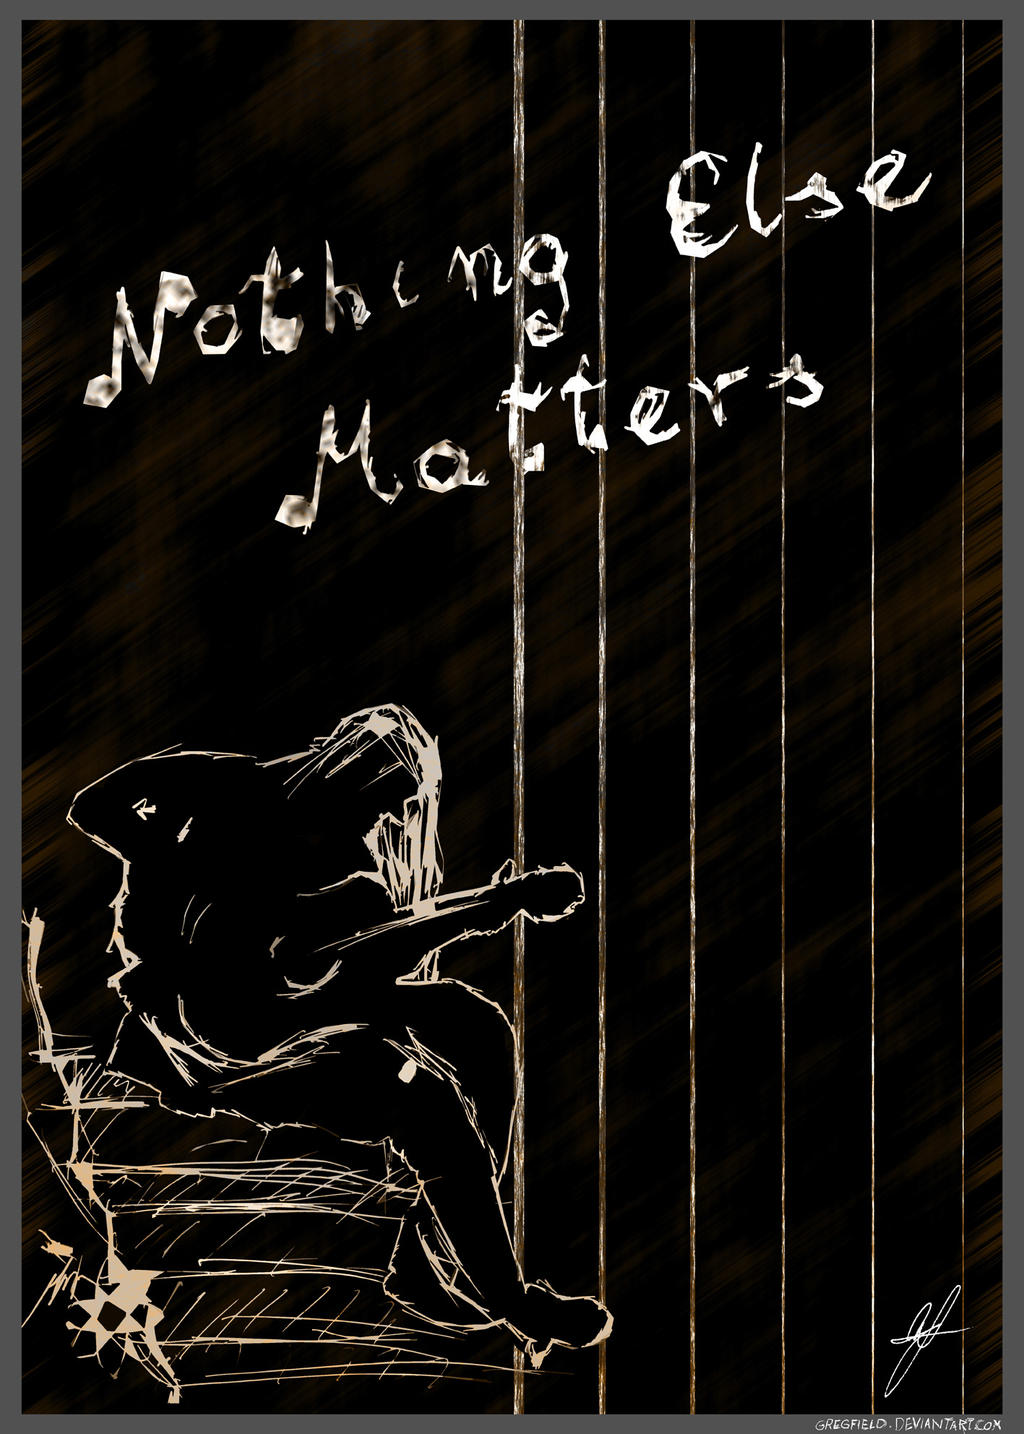 Nothing Else
Matters
GREGFIELD.DEVIANTART.COM